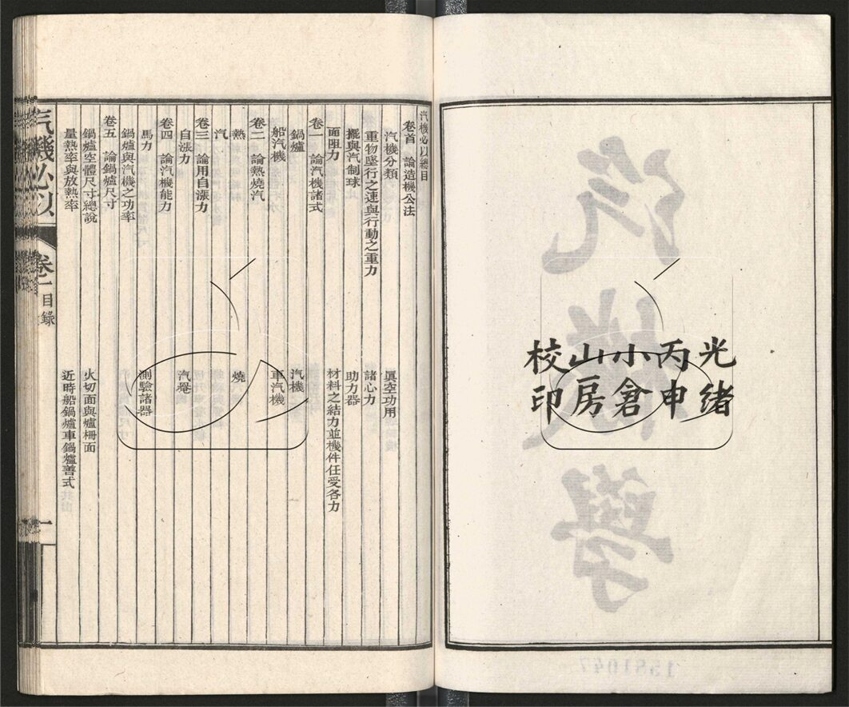 光緒
丙申
小倉
山房
校印
汽機必以總目
卷首 論造機公法
汽機分類 真空功用
重物墜行之速與行動之重力 諸心力
擺與汽制球 助力器
面阻力 材料之結力並機件任受各力
卷一 論汽機諸式
鍋爐 汽機
船汽機 車汽機
卷二 論熱燒汽
熱 燒
汽
卷三 論用自漲力
自漲力 汽罨
卷四 論汽機能力
馬力 測驗諸器
鍋爐與汽機之功率
卷五 論鍋爐尺寸
鍋爐空體尺寸總說 火切面與爐柵面
量熱率與放熱率 近時船鍋爐車鍋爐善式
汽機必以 卷一 目錄 一